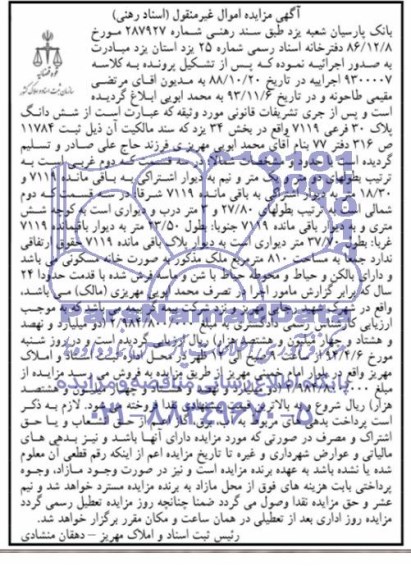 آگهی مزایده اموال غیرمنقول (اسناد رهنی)
بانک پارسیان شعبه یزد طبق سند رهنی شماره ۲۸۷۹۲۷ مورخ
۸۶/۱۲/۸ دفترخانه اسناد رسمی شماره ۲۵ یزد استان یزد مبادرت
به صدور اجرائیه نموده که پس از تشکیل پرونده به کلاسه
۹۳۰۰۰۰۷ اجراییه در تاریخ ۸۸/۱۰/۲۰ به مدیون آقای مرتضی
مقیمی طاحونه و در تاریخ ۹۳/۱۱/۶ به محمد ابویی ابلاغ گردیده
است و پس از جری تشریفات قانونی مورد وثیقه که عبارت است از شش دانگ
پلاک ۳۰ فرعی ۷۱۱۹ واقع در بخش ۳۴ یزد که سند مالکیت آن ذیل ثبت ۱۱۷۸۴
ص ۳۱۶ دفتر ۷۷ بنام آقای محمد ابویی مهریزی فرزند حاج علی صادر و تسلیم
گردیده است با حدود و مشخصات شمالا در سه قسمت که دوم غربی است به
ترتیب بطولهای دو متر و یک متر و نیم به دیوار اشتراکی به باقی مانده ۷۱۱۹ و
۱۸/۳۰ متر دیوار اشتراکی به باقی مانده ۷۱۱۹ شرقا در سه قسمت که دوم
شمالی است به ترتیب بطولهای ۲۷/۸۰ و ۲ متر درب و دیواری است به کوچه شش
متری و به دیوار باقی مانده ۷۱۱۹ جنوبا: بطول ۲۳/۵۰ متر به دیوار باقیمانده ۷۱۱۹
غربا: بطول ۳۷/۷۰ متر دیواری است به دیوار پلاک باقی مانده ۷۱۱۹ حقوق ارتفاقی
ندارد جمعا به مساحت ۸۱۰ مترمربع ملک مذکور به صورت خانه مسکونی می باشد
و دارای بالکن و حیاط و محوطه حیاط با شن و ماسه فرش شده با قدمت حدودا ۲۴
سال که برابر گزارش مامور اجرا در تصرف محمد ابویی مهریزی (مالک) می باشد
ارزیابی کارشناس رسمی دادگستری به مبلغ (دو میلیارد و نهصد
و هشتاد و چهار میلیون و هشتصد هزار) ریال ارزیابی گردیده است و در روز شنبه
مورخ ۹۴/۴/۶ از ساعت ۹ صبح الی ۱۲ ظهر در محل اداره ثبت اسناد و املاک
مهریز واقع در بلوار امام خمینی مهریز از طریق مزایده به فروش می رسد مزایده از
مبلغ ۲/۹۸۴/۸۰۰/۰۰۰ (دو میلیارد و نهصد و هشتاد و چهار میلیون و هشتصد
هزار) ریال شروع و به بالاترین قیمت پیشنهادی نقدا فروخته می شود. لازم به ذکر
است پرداخت بدهی های مربوط به آب، برق، گاز اعم از حق انشعاب و یا حق
اشتراک و مصرف در صورتی که مورد مزایده دارای آنها باشد و نیز بدهی های
مالیاتی و عوارض شهرداری و غیره تا تاریخ مزایده اعم از اینکه رقم قطعی آن معلوم
شده یا نشده باشد به عهده برنده مزایده است و نیز در صورت وجود مازاد، وجوه
پرداختی بابت هزینه های فوق از محل مازاد به برنده مزایده مسترد خواهد شد و نیم
عشر و حق مزایده نقدا وصول می گردد ضمنا چنانچه روز مزایده تعطیل رسمی گردد
مزایده روز اداری بعد از تعطیلی در همان ساعت و مکان مقرر برگزار خواهد شد.
رئیس ثبت اسناد و املاک مهریز – دهقان منشادی
ParsNamadData
پایگاه اطلاع رسانی مناقصه و مزایده
۰۲۱-۸۸۳۴۹۶۷۰-۵